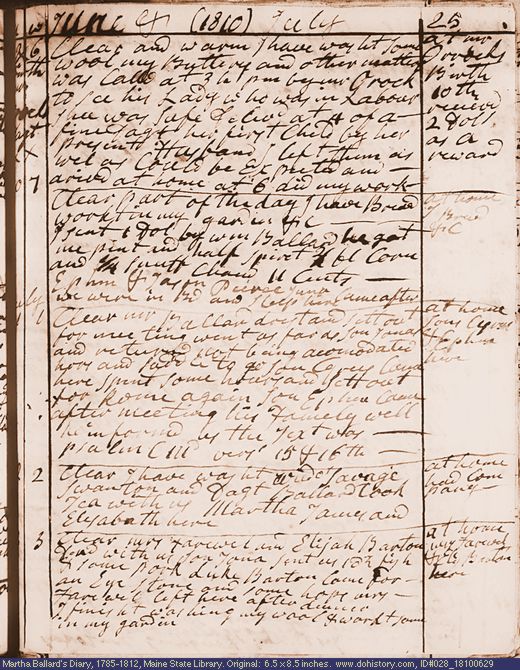 June & (1810) July 25
6 Clear and warm I have washt some
wool my Buttery and other matters
was Calld at 3 h pm by mr Crock
to see his Lady who was in Labour
shee was safe Deliverd at 4 of a
fine dagt her first Child by her
present Husband I left them as
wel as Could be Expected and
arivd at home at 6 did my work
at mr
Birth
10th
receivd
2 Doll
as a
reward
7 Clear part of the day I have Brewd
workt in my gardin &C
I sent 1 Dol by wm Ballard he got
me pint and half Spirit 2 lb Corn
and 1/4 snuff Chang 11 Cents
at home
Brewd
&C
Ephm & Jason Pierce
we were in Bed and
July
1 Clear mr Ballard drest and sett out
for meeting went as far as son Jonas
and returnd not being acomodated
hors and Sadle to go son Cyrus Came
here spent some hours and sett out
for home again son Ephm Came
after meeting his Famely well
he informd us the Text was
psalm CIII vers 15 & 16th
at home
sons Cyrus
& Ephm
here
2 Clear I have washt wido Savage
Swanton and Dagt Ballard took
Tea with us Martha James and
Elisabeth here
at home
had Com
pany
3 Clear mrs Farewel and Elijah Barton
dind with us son Jona sent us fish
& some Pork Luke Barton Came for
an Ege
Farewel left here after dinner
I finisht washing my wool & workt some
in my gardin
at home
mrs Farewel
& E Barton
here
Martha Ballard's Diary, 1785-1812, Maine State Library. Original: 6.5 x 8.5 inches. www.dohistory.com, ID#028_18100629